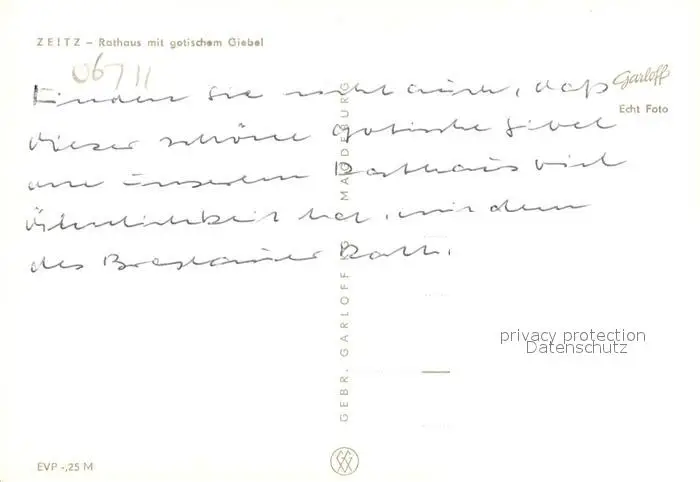 ZEITZ – Rathaus mit gotischem Giebel
06711
Finden Sie nicht auch, daß
dieser schöne gotische Gibel
an unserem Rathaus viel
Ähnlichkeit hat, mit dem
des Breslauer Rath.
Garloff
Echt Foto
GEBR. GARLOFF MAGDEBURG
privacy protection
Datenschutz
EVP -,25 M